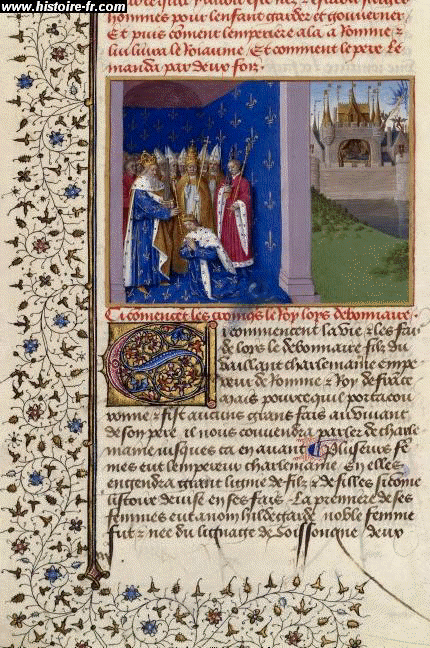 www.histoire-fr.com
hommes pour lenfant garder et gouverner
Et puis coment lemperiere ala a Romme &
lui livra le Roiaume / Et comment le pere le
manda par deux foiz.
Ci comencent les croniqs le Roy loys debonnaire.
Ci commencent la vie & les fais
de loys le debonnaire filz du
vaillant charlemaine empe
reur de Romme & Roy de france
mais pource quil porta cou
ronne & fist aucuns grans fais au vivant
de son pere il nous convendra parler de charle
maine iusques ca en avant Plusieurs fe
mes eut lempereur charlemaine En elles
engendra grant ligne de filz & de filles si come
listoire devise en ses fais La premiere de ses
femmes eut a nom hildegarde noble femme
fut & nee du lignage de Soissongne deux